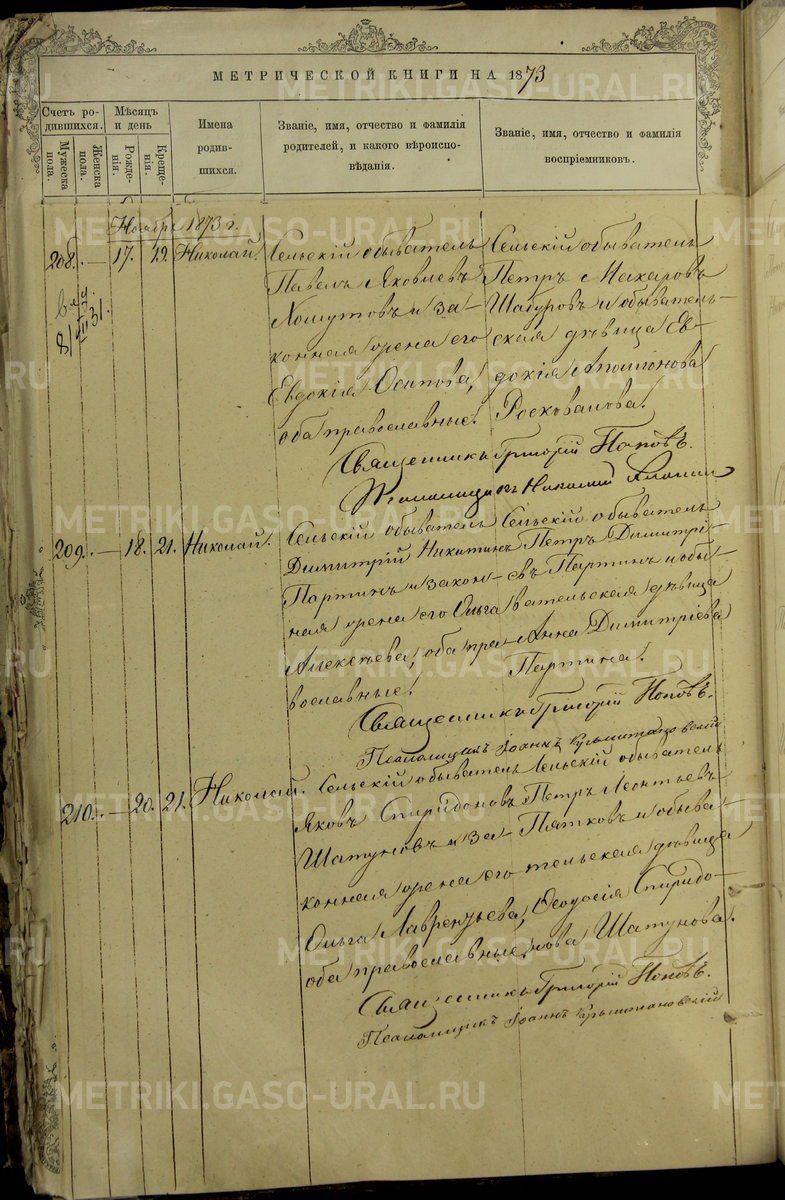 МЕТРИЧЕСКОЙ КНИГИ НА 1873
Счетъ родившихся.
Мужеска пола.
Женска пола.
Мѣсяцъ и день
Рожденія.
Крещенія.
Имена родившихся.
Званіе, имя, отчество и фамилія родителей, и какого вѣроисповѣданія.
Званіе, имя, отчество и фамилія воспріемниковъ.
Ноябрь 1873 г.
208. — 17. Николай.
Сельскій обыватель
Павелъ Яковлевъ
Хомутовъ и за-
конная жена его
Евдокія Осипова,
оба православные.
Сельскій обыватель
Петръ Макаровъ
и обыватель-
ская дѣвица Ев-
докія
Священникъ Григорій Поповъ.
Псаломщикъ Николай
209. — 18. 21. Николай.
Сельскій обыватель
Димитрій Никитинъ
Партинъ и закон-
ная жена его Ольга
Алексѣева, оба пра-
вославные.
Сельскій обыватель
Петръ Димитрі-
евъ Партинъ и обы-
вательская дѣвица
Анна Димитріева
Партина.
Священникъ Григорій Поповъ.
Псаломщикъ Іоаннъ
210. — 20. 21. Николай.
Сельскій обыватель
Яковъ Спиридоновъ
Шатуновъ и за-
конная жена его
Ольга Лаврентьева,
оба православные.
Сельскій обыватель
Петръ Леонтьевъ
Пятковъ и обыва-
тельская дѣвица
Ѳеодосія Спиридо-
нова Шатунова.
Священникъ Григорій Поповъ.
Псаломщикъ Іоаннъ
METRIKI.GASO-URAL.RU